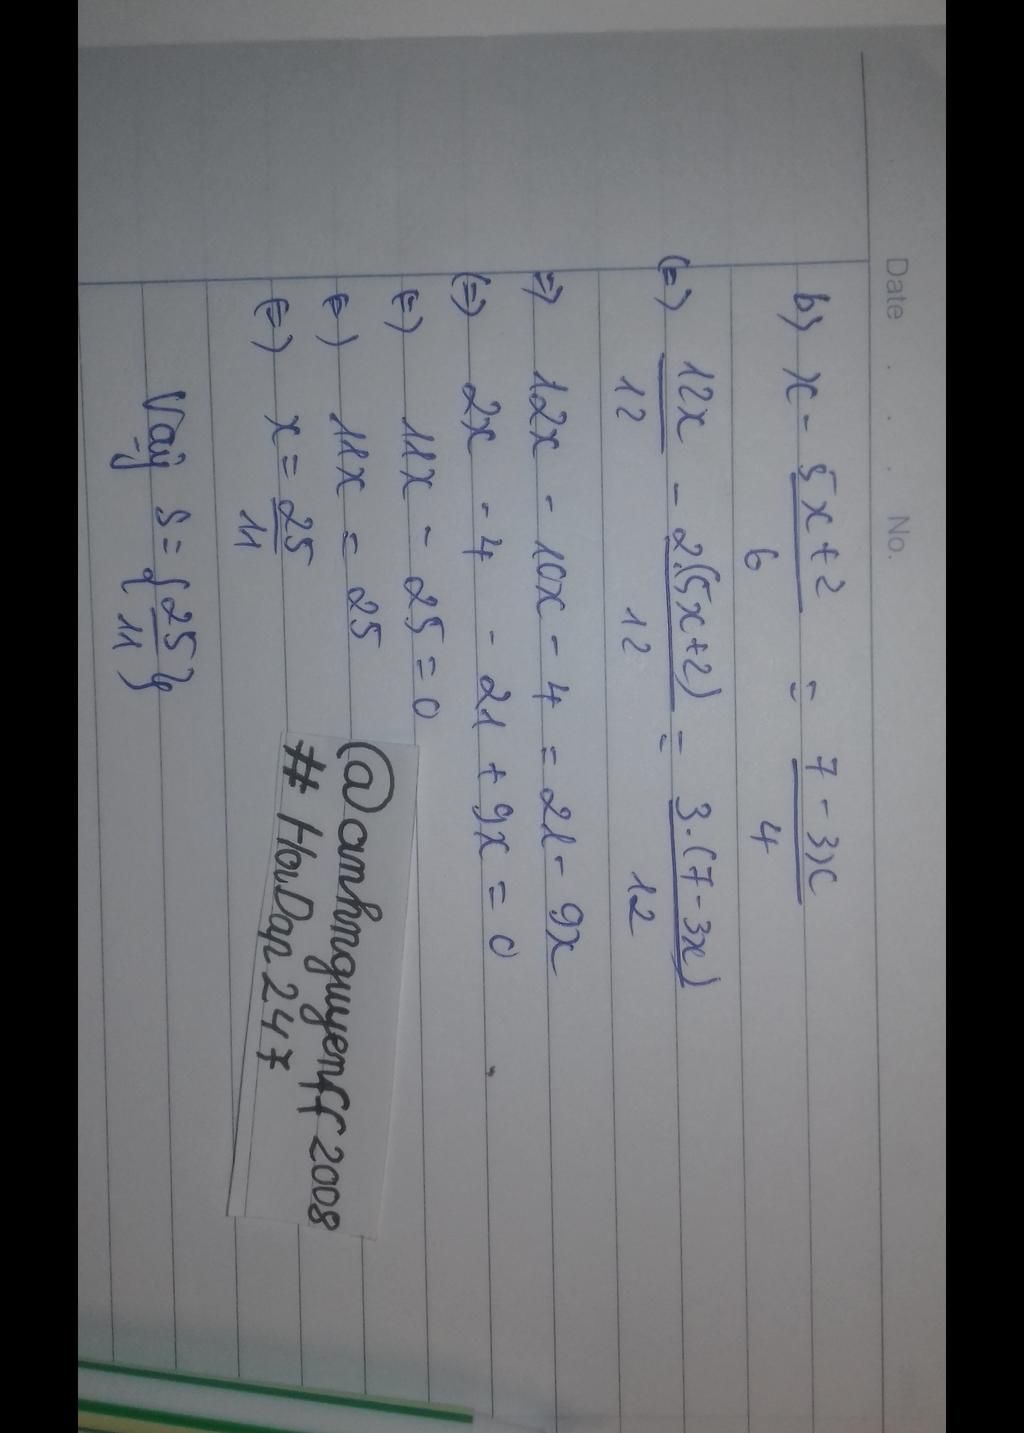 Date . . . No.
b) x - \frac{5x+2}{6} = \frac{7-3x}{4}
(=) \frac{12x}{12} - \frac{2.(5x+2)}{12} = \frac{3.(7-3x)}{12}
=) 12x - 10x - 4 = 21 - 9x
(=) 2x - 4 - 21 + 9x = 0
(=) 11x - 25 = 0
(=) 11x = 25
(=) x = \frac{25}{11}
Vậy S = {\frac{25}{11}}
@anhnguyenff2008
# HoiDap247